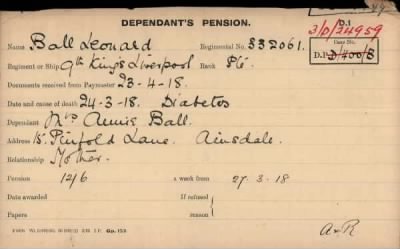 DEPENDANT'S PENSION.
D.1
3/D/34959
Name Ball Leonard Regimental No. 332061.
Case No.
D.P.
Regiment or Ship 9th King's Liverpool Rank Pte.
Documents received from Paymaster 23-4-18.
Date and cause of death 24-3-18. Diabetes
Dependant Mrs Annie Ball.
Address 15, Pinfold Lane. Ainsdale.
Relationship Mother.
Pension 12/6 a week from 27.3.18
Date awarded If refused
Papers reason
A&R